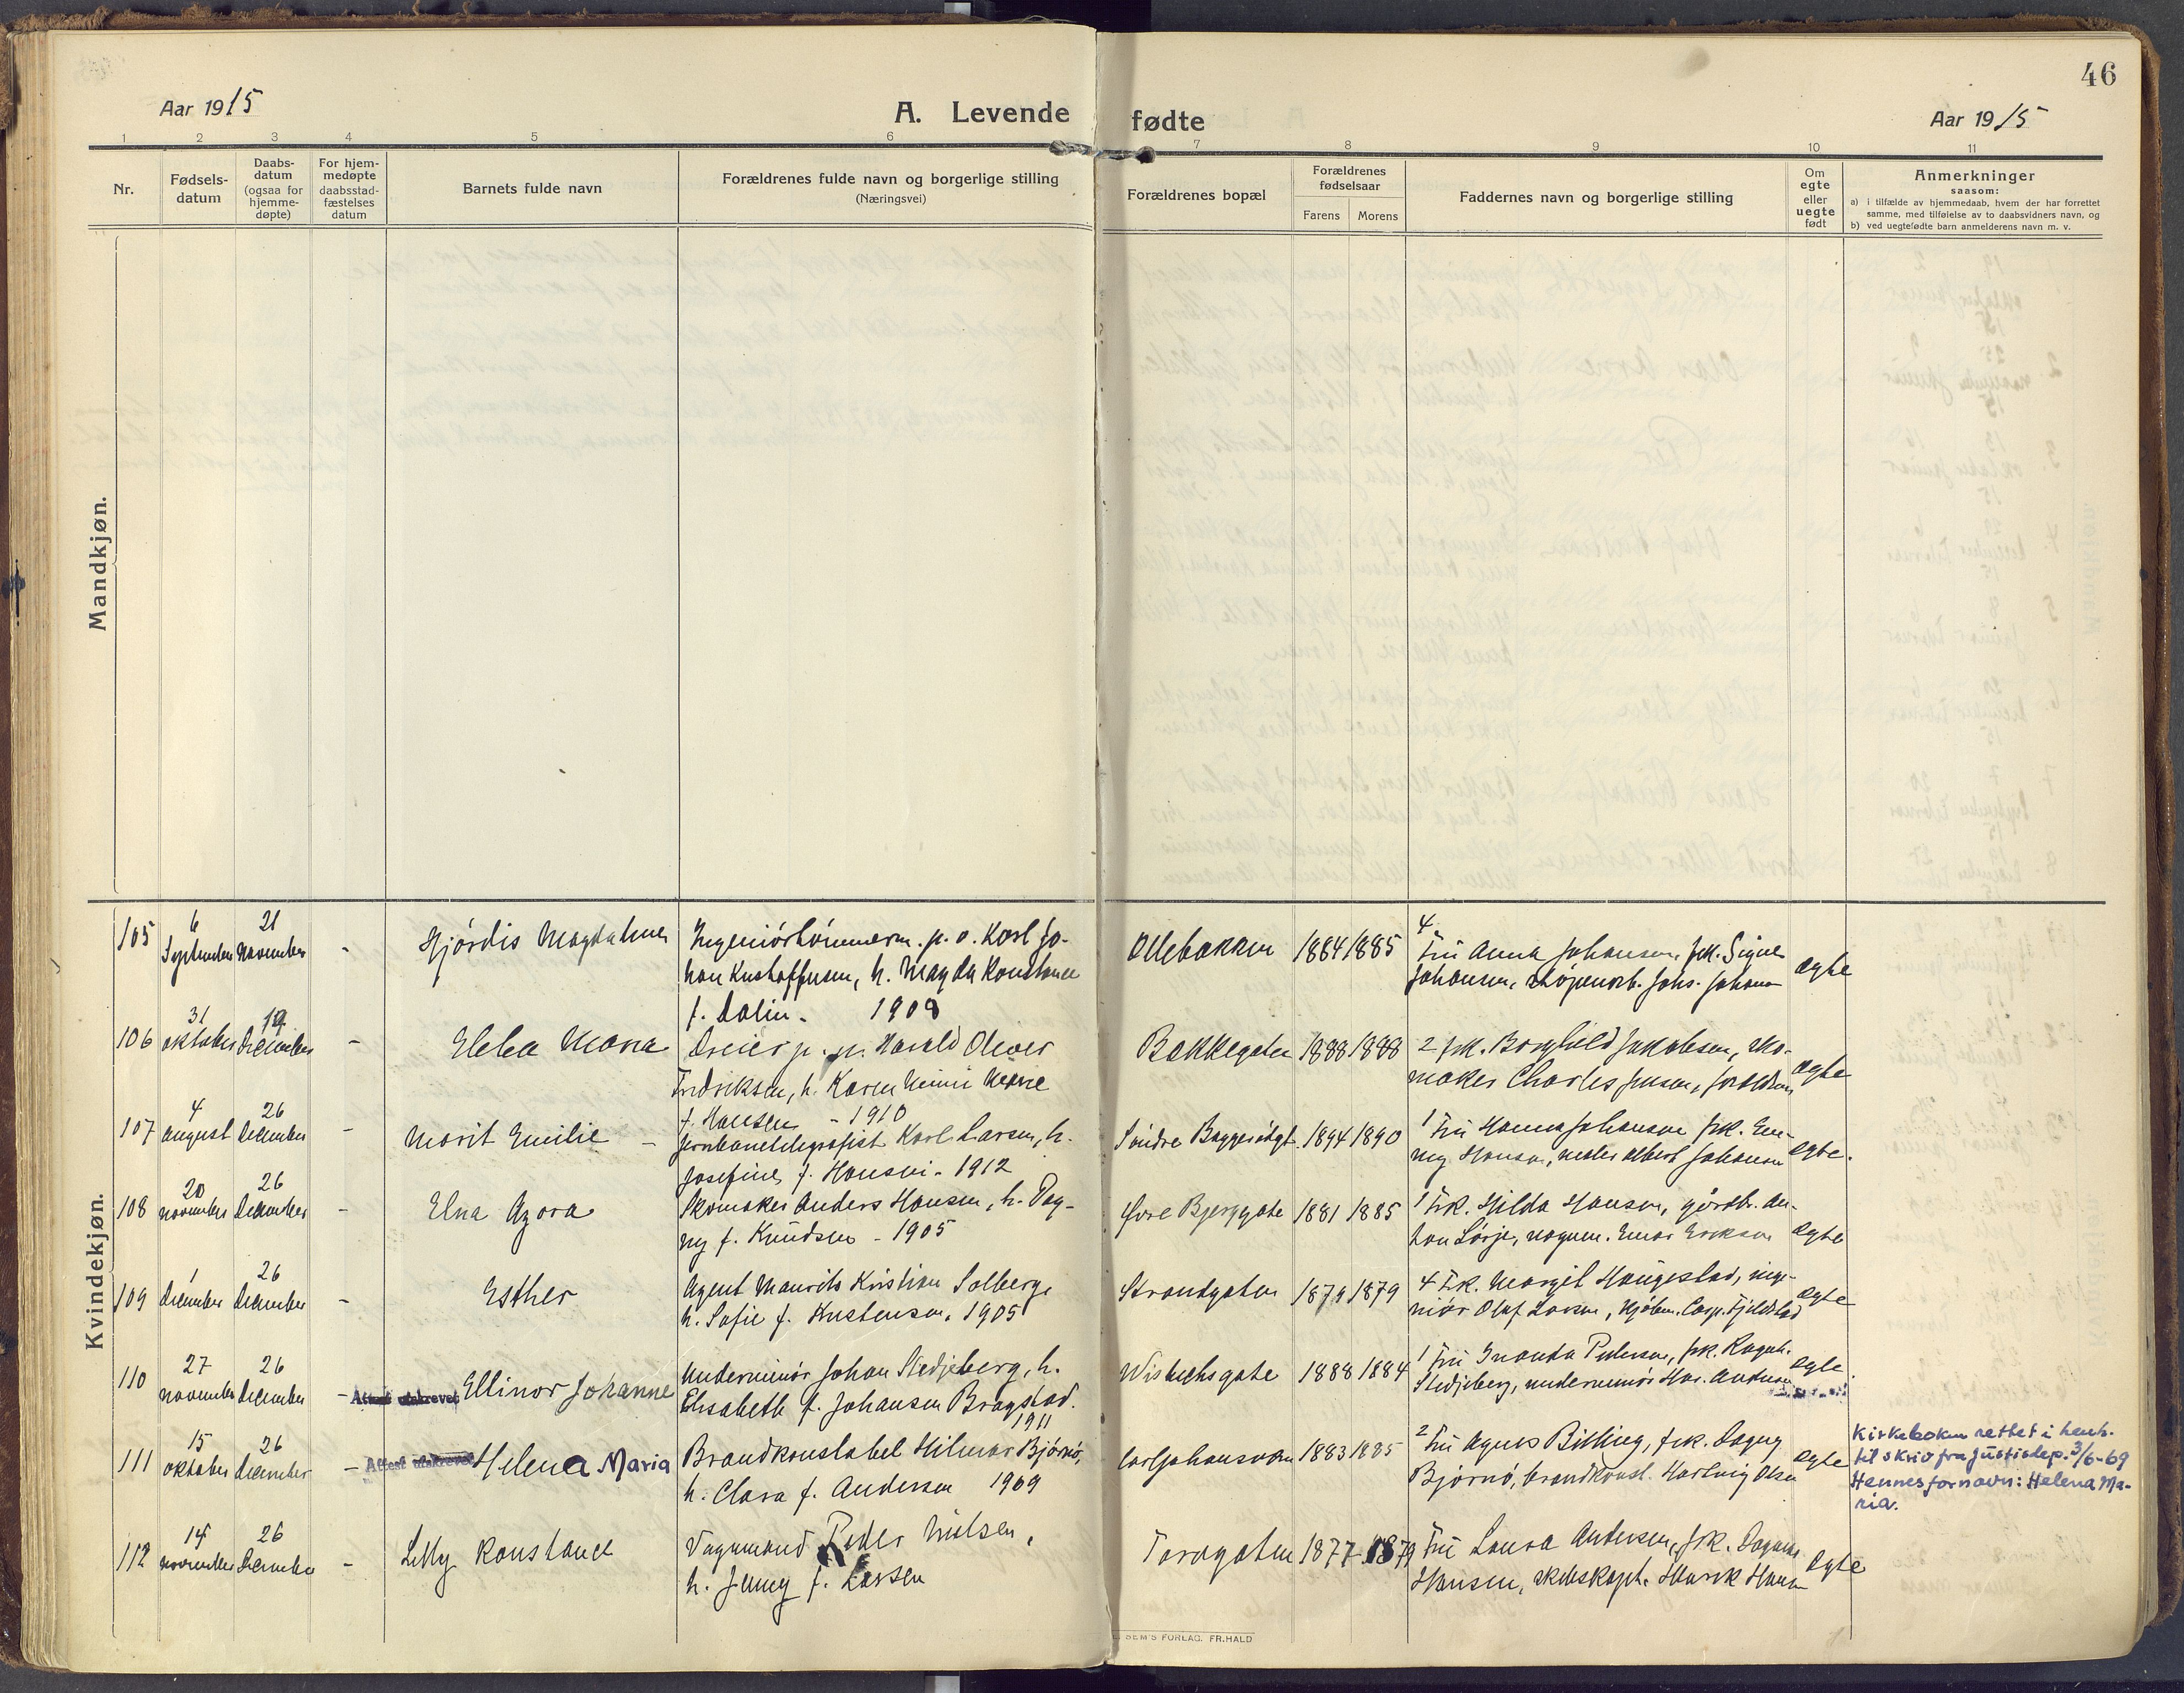 46
Aar 1915
A. Levende fødte
Aar 1915
1 2 3 4 5 6 7 8 9 10 11
Nr.
Fødsels-
datum
Daabs-
datum
(ogsaa for
hjemme-
døpte)
For hjem-
medøpte
daabsstad-
fæstelses
datum
Barnets fulde navn
Forældrenes fulde navn og borgerlige stilling
(Næringsvei)
Forældrenes bopæl
Forældrenes
fødselsaar
Farens Morens
Faddernes navn og borgerlige stilling
Om
egte
eller
uegte
født
Anmerkninger
saasom:
a) i tilfælde av hjemmedaab, hvem der har forrettet
samme, med tilføielse av to daabsvidners navn, og
b) ved uegtefødte barn anmelderens navn m. v.
Mandkjøn.
Kvindekjøn.
105 6 September 21 November - Hjördis Magdalene
Karl Jo-
han Kristoffersen, h. Magda Konstance
f. Dalin - 1908
Ollebakken 1884 1885
4 Fru Anna Johansen, frk. Signe
Johansen, Johs. Johansen
egte
106 31 oktober 19 December - Ebba Maria
Dreier Harald Oliver
Fredriksen, h. Karen Mimi Marie
f. Hansen - 1910
Bakkegaten 1888 1888
2 frk. Borghild Jakobsen, sko-
maker Charles Jensen, forældrene
egte
107 4 august 26 December - Marit Emilie -
Jernbanetelegrafist Karl Larsen, h.
Josefine f. Hansen - 1912
Söndre Baggerödgt. 1894 1890
1 Fru Hanna Johansen frk. Em-
my Hansen, maler Albert Johansen
egte.
108 20 november 26 December - Elna Azora
Skomaker Anders Hansen, h. Dag-
ny f. Knudsen - 1905
Øvre Bjerggate 1881 1885
1 Frk. Hilda Hansen, gördbr. An-
ton Einar Eriksen
egte
109 1 December 26 December - Esther
Agent Maurits Kristian Solberg,
h. Sofie f. Kristensen. 1905
Strandgaten 1879 1879
4 Frk. Margit Haugestad, inge-
niör Olaf Larsen, kjöbm. Casp. Fjeldstad
egte
110 27 november 26 December - Attest utskrevet Ellinor Johanne
Underminör Johan Stedjeberg, h.
Elisabeth f. Johansen Bragstad.
1911
1888 1884
1 Fru Pedersen, frk. Ragnh.
Stedjeberg, underminör
egte.
111 15 oktober 26 December - Attest utskrevet Helena Maria
Brandkonstabel Hilmar Björnö,
h. Clara f. Andersen 1909
Carljohansvarn 1883 1885
2 Fru Agnes Billing, frk. Dagny
Björnö, brandkonst. Hartvig Olsen
egte
Kirkeboken rettet i henh.
til skriv fra Justisdep. 3/6-69
Hennes fornavn: Helena Ma-
ria.
112 14 november 26 December - Lilly Konstance
Vognmand Peder Nielsen,
h. Jenny f. Larsen
Toragaten 1877 1879
Fru Laura Andersen, frk. Dagmar
Hansen, skibskapt. Henrik Hansen
egte
SEM'S FORLAG. FR.HALD